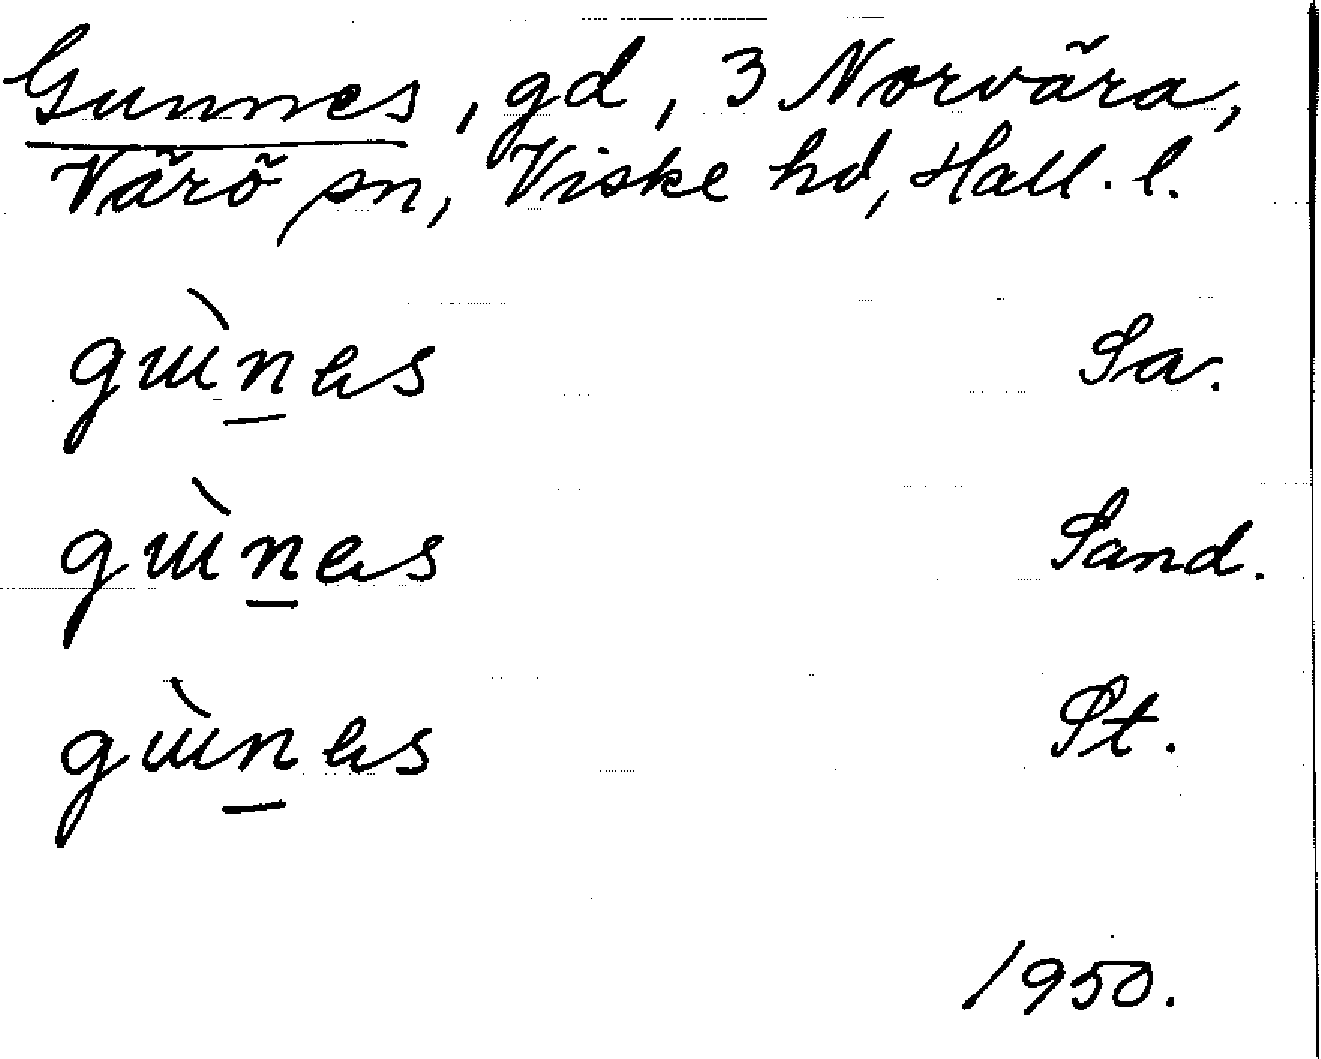 Gunnes, gd, 3 Norvära,
Värö sn, Viske hd, Hall. l.
gɯ̀n̲əs Sa.
gɯ̀n̲əs Sand.
gɯ̀n̲əs St.
1950.